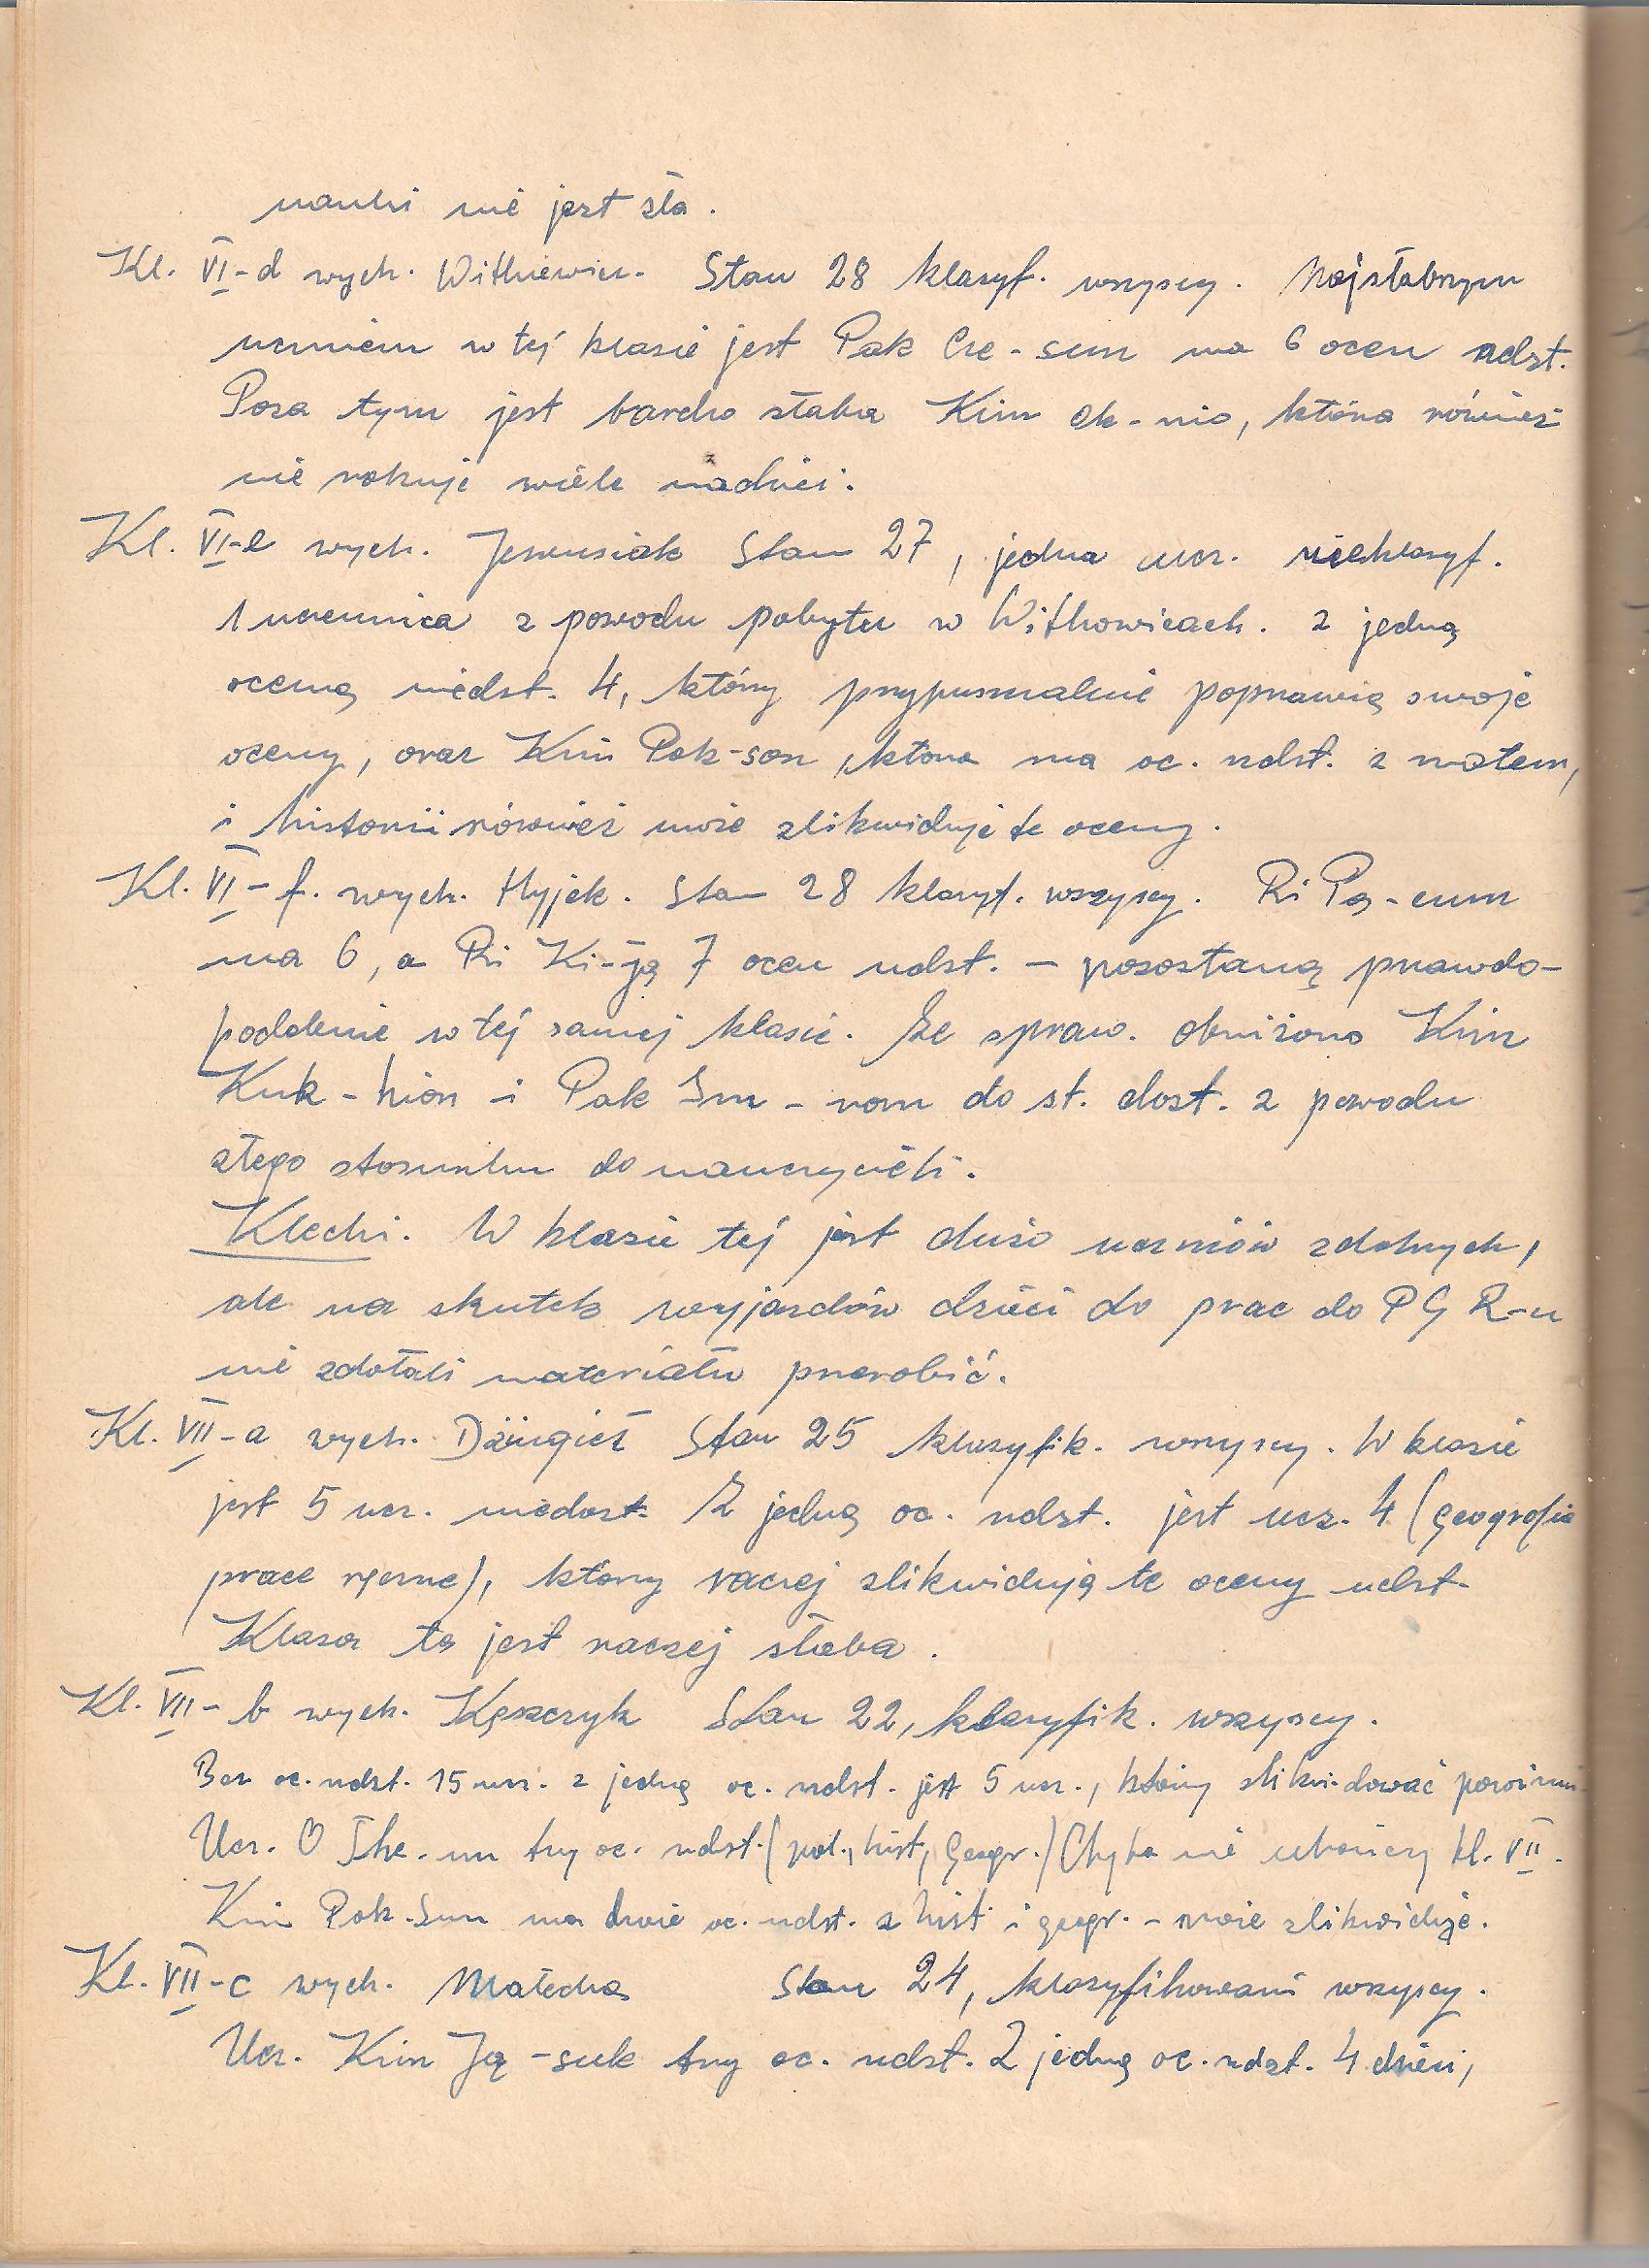 nauki nie jest zła.
Kl. VI-d wych. Witkiewicz. Stan 28 klasyf. wszyscy. Najsłabszym
uczniem w tej klasie jest Pak Cze-sun ma 6 ocen ndst.
Poza tym jest bardzo słaba Kim Ok-nio, która również
nie rokuje wiele nadziei.
Kl. VI-e wych. Stan 27, jedna ucz. nieklasyf.
1 uczennica z powodu pobytu w Witkowicach. z jedną
oceną niedst. 4, którzy przypuszczalnie poprawią swoje
oceny, oraz Kim Pok-son, która ma oc. ndst. z matem,
i historii również może zlikwiduje te oceny.
Kl. VI-f. wych. Hyjek. Stan 28 klasyf. wszyscy. Ri Pą-cum
ma 6, a Ri Ki-ją 7 ocen ndst. – pozostaną prawdo-
podobnie w tej samej klasie. Ze spraw. obniżono Kim
Kuk-hion i Pak Sun-nom do st. dost. z powodu
złego stosunku do nauczycieli.
Klecki. W klasie tej jest dużo uczniów zdolnych,
ale na skutek wyjazdów dzieci do prac do PGR-u
nie zdołali materiału przerobić.
Kl. VII-a wych. Dźwigieł Stan 25 klasyfik. wszyscy. W klasie
jest 5 ucz. niedost. Z jedną oc. ndst. jest ucz. 4 (geografia
prace ręczne), którzy raczej zlikwidują te oceny ndst.
Klasa ta jest raczej słaba.
Kl. VII-b wych. Kęszczyk Stan 22, klasyfik. wszyscy.
Bez oc. ndst. 15 ucz. z jedną oc. ndst. jest 5 ucz., którzy zlikwidować powinni
Ucz. O The-un trzy oc. ndst. (pol., hist, geogr.) Chyba nie ukończy kl. VII.
Kim Pok-Sun ma dwie oc. ndst. z hist i geogr. – może zlikwiduje.
Kl. VII-c wych. Małecka Stan 24, klasyfikowani wszyscy.
Ucz. Kim Ją-suk trzy oc. ndst. Z jedną oc. ndst. 4 dzieci,